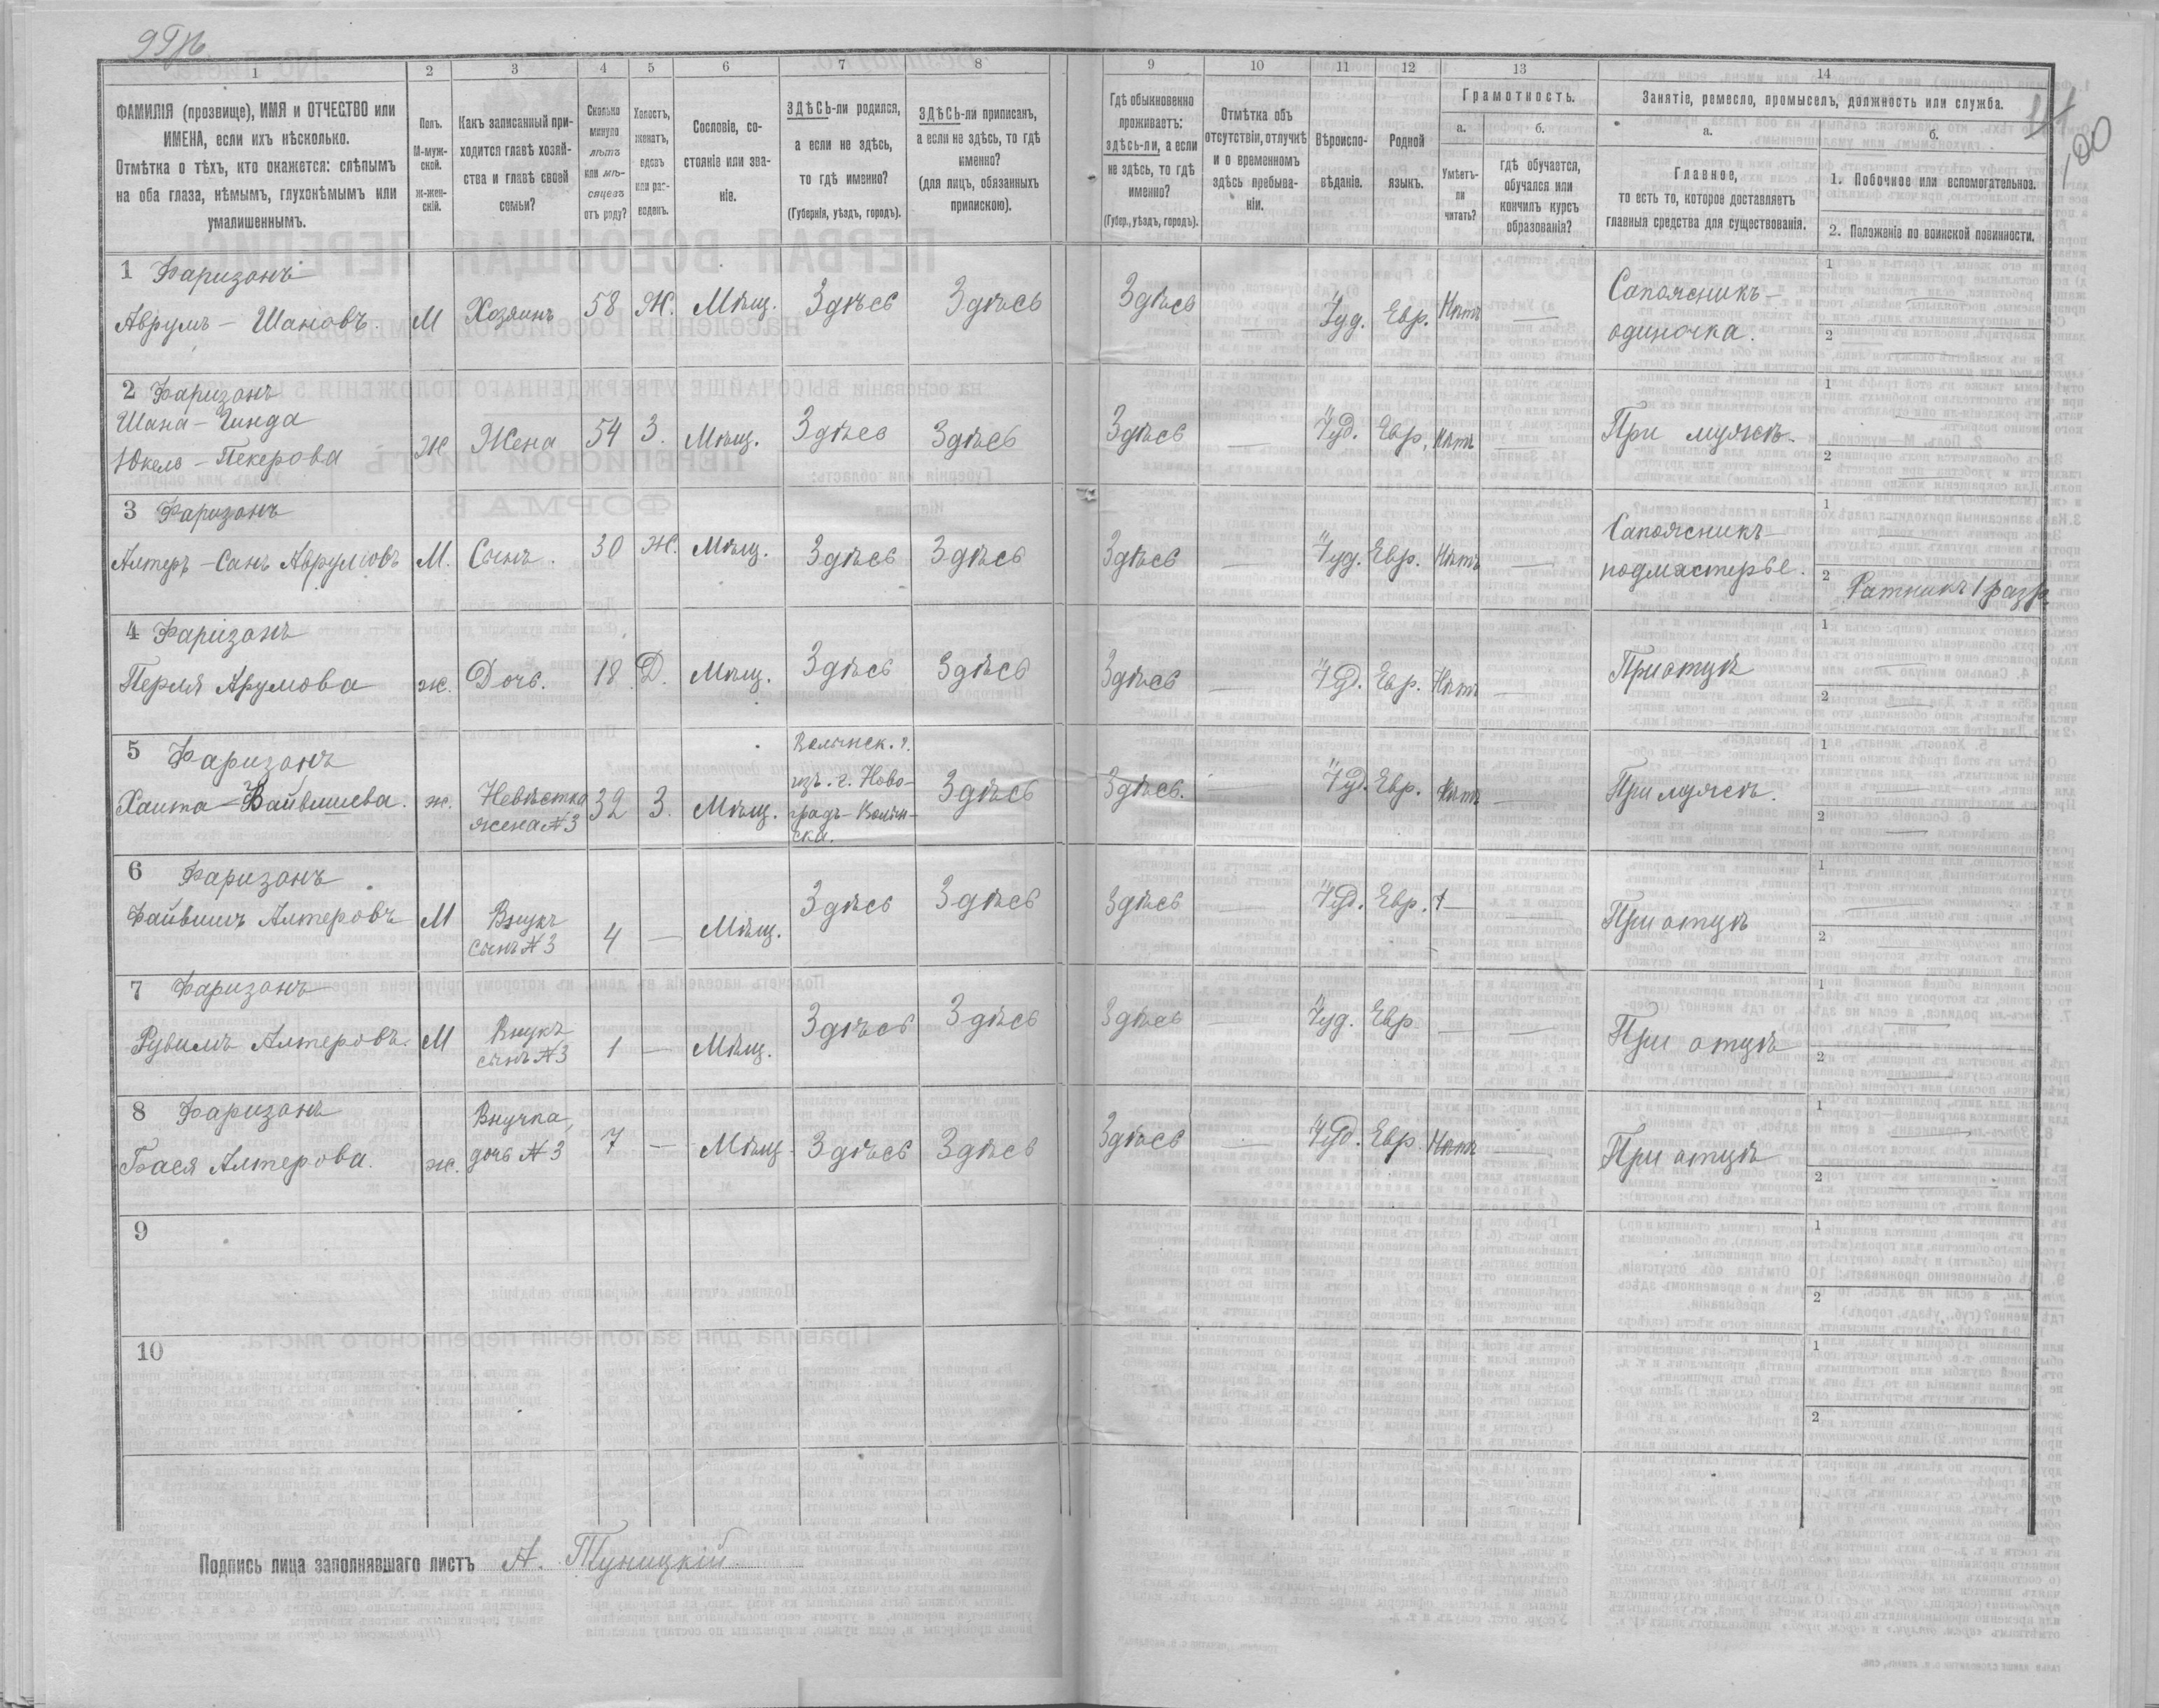 1 2 3 4 5 6 7 8 9 10 11 12 13 14
ФАМИЛІЯ (прозвище), ИМЯ и ОТЧЕСТВО или
ИМЕНА, если ихъ нѣсколько.
Отмѣтка о тѣхъ, кто окажется: слѣпымъ
на оба глаза, нѣмымъ, глухонѣмымъ или
умалишеннымъ.
Полъ.
М-муж-
ской.
Ж-жен-
скій.
Какъ записанный при-
ходится главѣ хозяй-
ства и главѣ своей
семьи?
Сколько
минуло
лѣтъ
или мѣ-
сяцевъ
отъ роду?
Холостъ,
женатъ,
вдовъ
или раз-
веденъ.
Сословіе, со-
стояніе или зва-
ніе.
ЗДѢСЬ-ли родился,
а если не здѣсь,
то гдѣ именно?
(Губернія, уѣздъ, городъ).
ЗДѢСЬ-ли приписан,
а если не здѣсь, то гдѣ
именно?
(для лицъ, обязанныхъ
припискою).
Гдѣ обыкновенно
проживаетъ:
здѣсь-ли, а если
не здѣсь, то гдѣ
именно?
(Губер., уѣздъ, городъ).
Отмѣтка объ
отсутствіи, отлучкѣ
и о временномъ
здѣсь пребыва-
ніи.
Вѣроиспо-
вѣданіе.
Родной
языкъ.
Грамотность.
а.
Умѣетъ-
ли
читать?
б.
гдѣ обучается,
обучался или
кончилъ курсъ
образованія?
Занятіе, ремесло, промыселъ, должность или служба.
а.
Главное,
то есть то, которое доставляетъ
главныя средства для существованія.
б.
1. Побочное или вспомогательное.
2. Положеніе по воинской повинности.
100
1 Фаризонъ
Аврумъ — Шановъ. М Хозяинъ 58 Ж. Мѣщ. Здѣсь Здѣсь Здѣсь — Іуд. Евр. Нѣтъ —
Сапожникъ —
одиночка.
1 —
2
2 Фаризонъ
Шана — Гинда
Юкель — Пекерова Ж Жена 54 З. Мѣщ. Здѣсь Здѣсь Здѣсь — Іуд. Евр. Нѣтъ При мужѣ.
1 —
2
3 Фаризонъ
Алтеръ — Санъ Аврумовъ М. Сынъ. 30 Ж. Мѣщ. Здѣсь Здѣсь Здѣсь — Іуд. Евр. Нѣтъ —
Сапожникъ —
подмастерье.
1 —
2 Ратникъ 1 разр.
4 Фаризонъ
Перля Арумова ж. Дочь. 18 Д. Мѣщ. Здѣсь Здѣсь Здѣсь — Іуд. Евр. Нѣтъ — При отцѣ
1 —
2 —
5 Фаризонъ
Хаита — Файвишева. ж. Невѣстка
жена № 3 32 З. Мѣщ.
Волынск. г.
изъ. г. Ново-
градъ-Волын-
ска.
Здѣсь Здѣсь. — Іуд. Евр. Нѣтъ — При мужѣ.
1 —
2 —
6 Фаризонъ
Файвишъ Алтеровъ М Внукъ
сынъ № 3 4 — Мѣщ. Здѣсь Здѣсь Здѣсь — Іуд. Евр. — — При отцѣ
1 —
2 —
7 Фаризонъ
Рувимъ Алтеровъ. М Внукъ
сынъ № 3 1 — Мѣщ. Здѣсь Здѣсь Здѣсь Іуд. Евр — — При отцѣ
1 —
2 —
8 Фаризонъ
Бася Алтерова. ж. Внучка,
дочь № 3 7 — Мѣщ. Здѣсь Здѣсь Здѣсь — Іуд. Евр Нѣтъ — При отцѣ
1 —
2 —
9
1
2
10
1
2
Подпись лица заполнявшаго листъ А. Туницкій